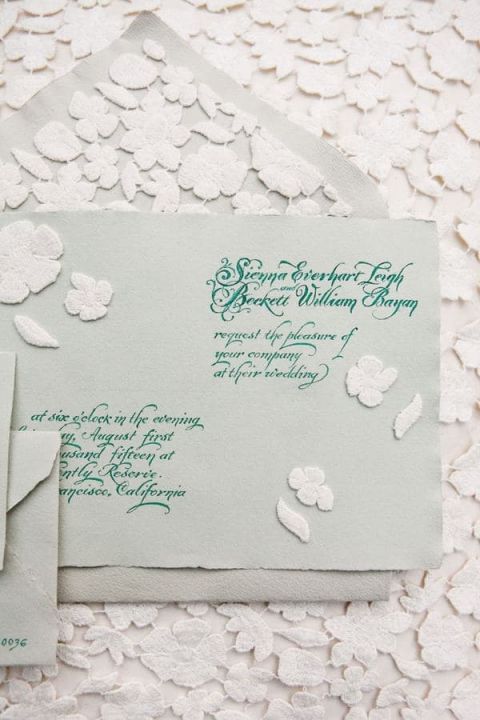 Sienna Everhart Leigh
and
Beckett William Bayan
request the pleasure of
your company
at their wedding
at six o'clock in the evening
August first
fifteen at
Reserve.
California
0036